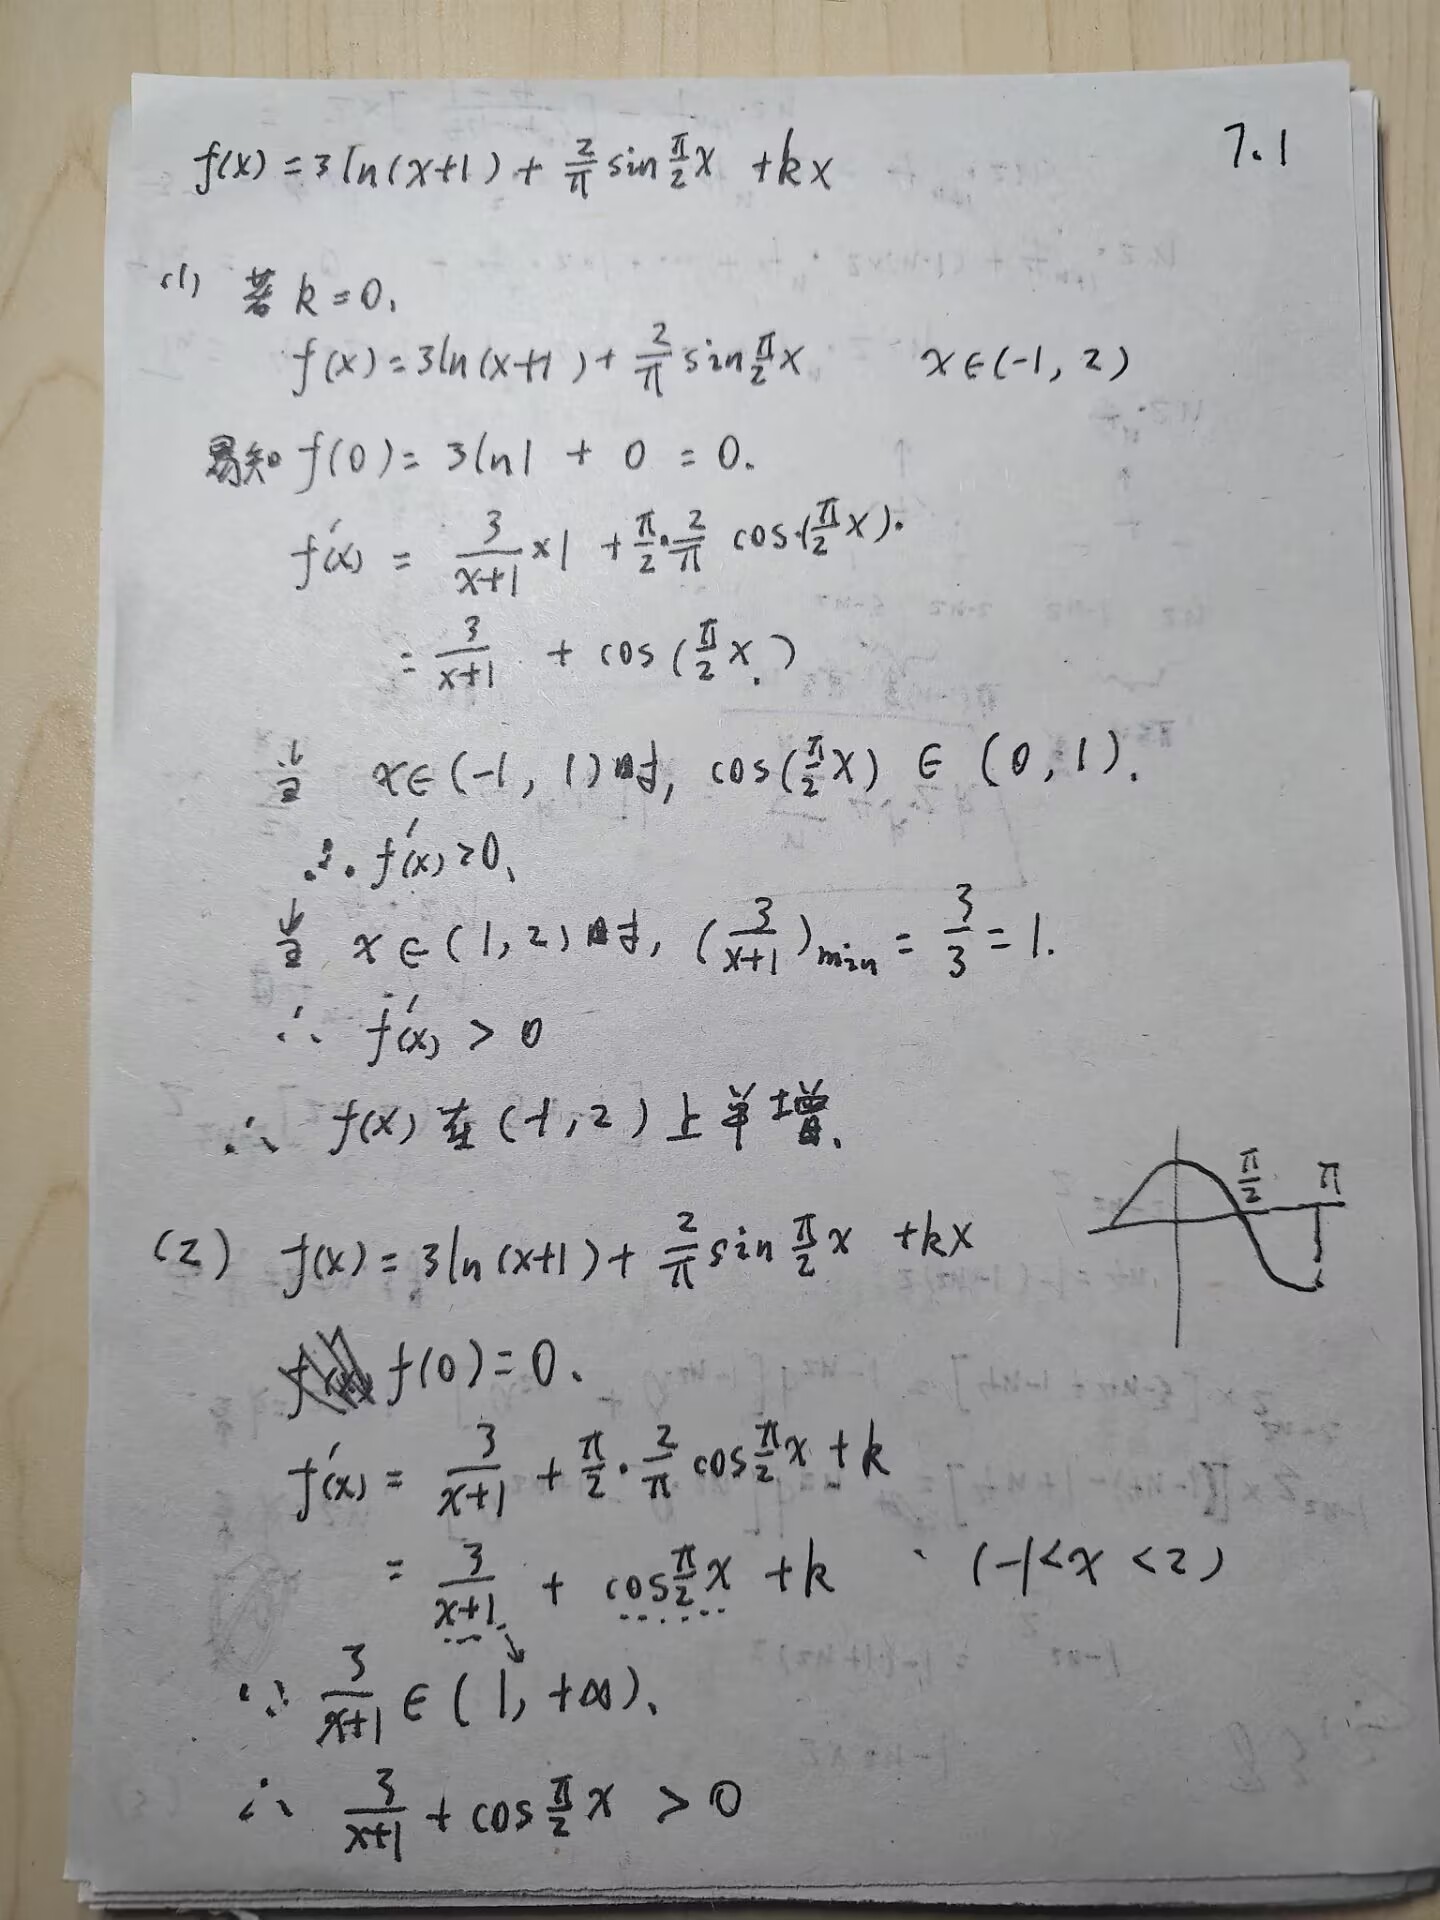 7.1
f(x)=3ln(x+1)+2/π sin π/2 x +kx
(1) 若 k=0.
f(x)=3ln(x+1)+2/π sin π/2 x x∈(-1,2)
易知 f(0)=3ln1+0=0.
f'(x)=3/(x+1)×1+π/2·2/π cos(π/2 x).
=3/(x+1)+cos(π/2 x.)
当 x∈(-1,1)时,cos(π/2 x)∈(0,1).
∴f'(x)>0.
当 x∈(1,2)时,(3/(x+1))min=3/3=1.
∴ f'(x)>0
∴ f(x)在(-1,2)上单增.
π/2 π
(2) f(x)=3ln(x+1)+2/π sin π/2 x +kx
f(0)=0.
f'(x)=3/(x+1)+π/2·2/π cos π/2 x+k
=3/(x+1)+cos π/2 x+k (-1<x<2)
∵ 3/(x+1)∈(1,+∞).
∴ 3/(x+1)+cos π/2 x>0